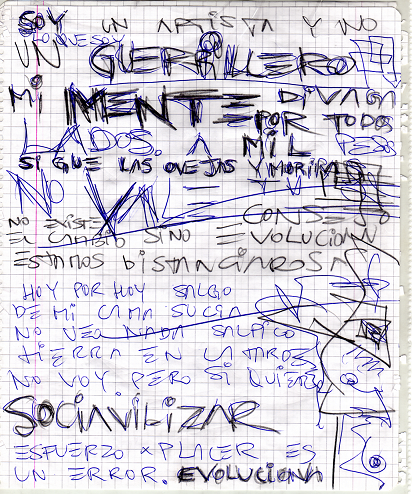 SOY UN ARTISTA Y NO
LO QUE SOY
UN GUERRILLERO
MI MENTE DIVAGA
POR TODOS
LADOS. A MIL PESOS
SIGUE LAS OVEJAS Y MORIRAS
NO VALE
CONSEJO
NO EXISTE
EL CAMBIO SINO EVOLUCION
ESTAMOS DISTANCIADOS A
HOY POR HOY SALGO
DE MI CAMA SUCIA
NO VEO NADA SALPICO
TIERRA EN
NO VOY PERO SI QUIERO
SOCIAVILIZAR
ESFUERZO X PLACER ES
UN ERROR. EVOLUCIONA